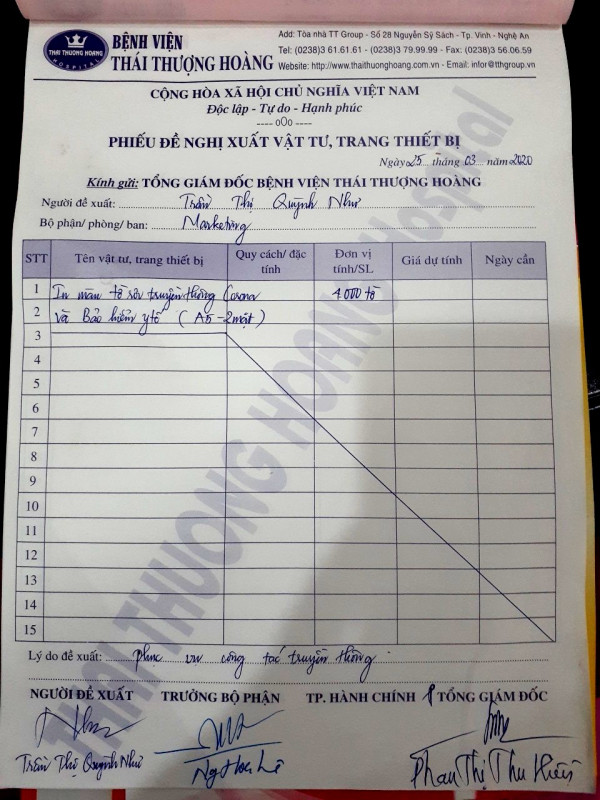 THAI THUONG HOANG
HOSPITAL
BỆNH VIỆN
THÁI THƯỢNG HOÀNG
Add: Tòa nhà TT Group - Số 28 Nguyễn Sỹ Sách - Tp. Vinh - Nghệ An
Tel: (0238)3 61.61.61 - (0238)3 79.99.99 - Fax: (0238)3 56.06.59
Website: http://www.thaithuonghoang.com.vn - Email: infor@tthgroup.vn
CỘNG HÒA XÃ HỘI CHỦ NGHĨA VIỆT NAM
Độc lập - Tự do - Hạnh phúc
---- o0o ----
PHIẾU ĐỀ NGHỊ XUẤT VẬT TƯ, TRANG THIẾT BỊ
Ngày 25 tháng 03 năm 2020
Kính gửi: TỔNG GIÁM ĐỐC BỆNH VIỆN THÁI THƯỢNG HOÀNG
Người đề xuất: Trần Thị Quỳnh Như
Bộ phận/ phòng/ ban: Marketing
STT Tên vật tư, trang thiết bị Quy cách/ đặc tính Đơn vị tính/SL Giá dự tính Ngày cần
1 In màu tờ rơi truyền thông Corona 4000 tờ
2 và Bảo hiểm y tế (A5 - 2 mặt)
3
4
5
6
7
8
9
10
11
12
13
14
15
Lý do đề xuất: phục vụ công tác truyền thông
NGƯỜI ĐỀ XUẤT TRƯỞNG BỘ PHẬN TP. HÀNH CHÍNH TỔNG GIÁM ĐỐC
Trần Thị Quỳnh Như
Phan Thị Thu Hiền
THAI THUONG HOANG Hospital